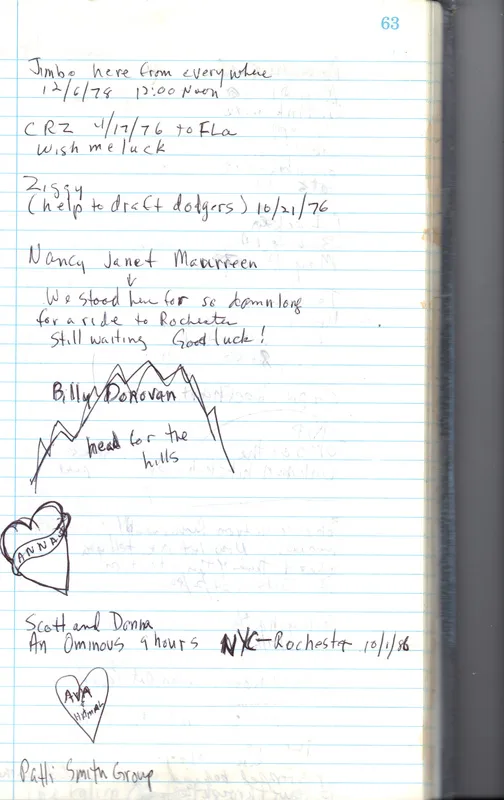 63
Jimbo here from everywhere
12/6/78 12:00 Noon
CRZ 4/17/76 to FLa
wish me luck
Ziggy
(help to draft dodgers) 10/21/76
Nancy Janet Maurreen
We stood here for so damn long
for a ride to Rochester
Still waiting Good luck!
Billy Donovan
head for the
hills
ANNAS
Scott and Donna
An Ominous 9 hours NYC-Rochester 10/1/86
AVA
&
Patti Smith Group